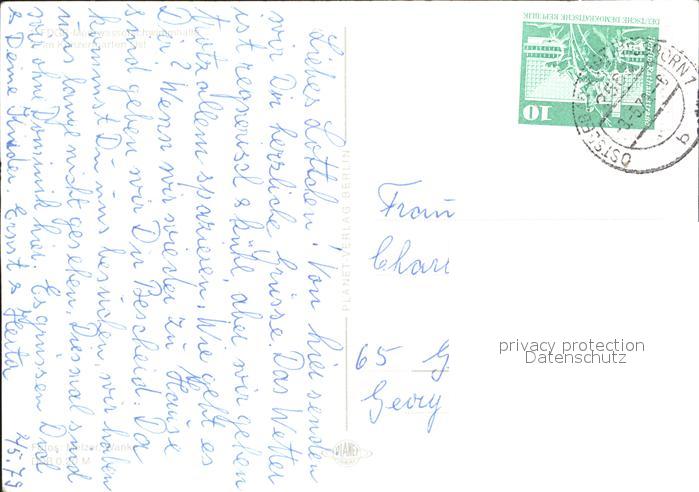 Liebes Lottchen! Von hier senden
wir Dir herzliche Grüsse. Das Wetter
ist regnerisch & kühl, aber wir gehen
trotz allem spazieren. Wie geht es
Dir? Wenn wir wieder zu Hause
sind geben wir Dir Bescheid. Da
kommst Du uns besuchen, wir haben
uns lange nicht gesehen. Diesmal sind
wir ohne Dominik hier. Es grüssen Dich
& Deine Kinder. Ernst & Herta
2/5.79
PLANET-VERLAG BERLIN
PLANET
DEUTSCHE DEMOKRATISCHE REPUBLIK
10
OSTSEEBAD
b
Frau
Char
65 G
Georg
privacy protection
Datenschutz